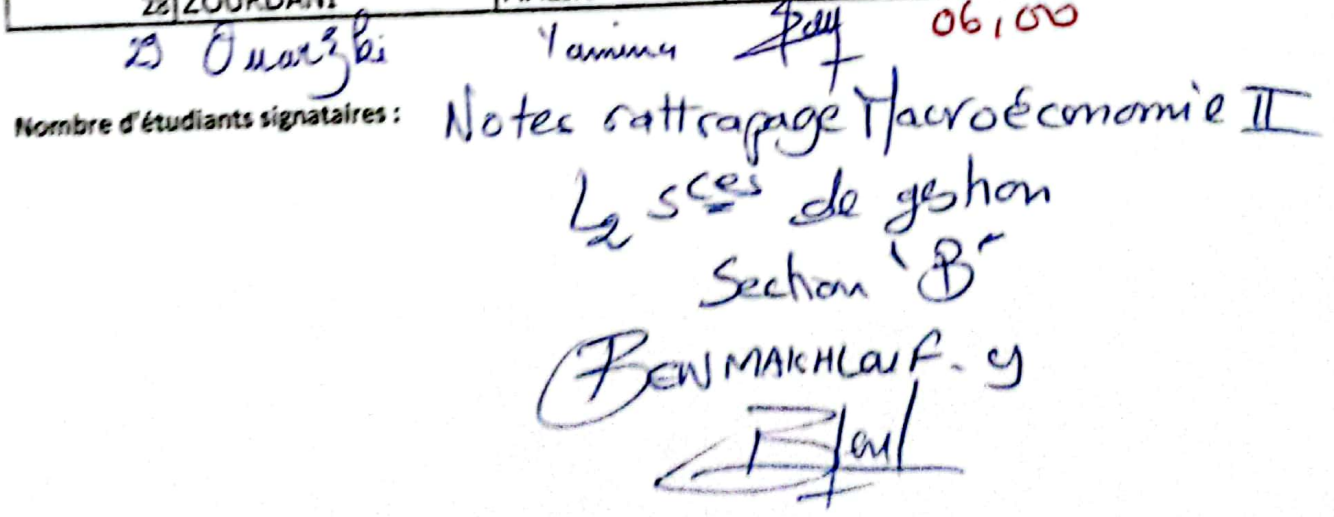 28 ZOURDANI
29 Ouarzki Yamina 06,00
Nombre d'étudiants signataires : Notes rattrapage Macroéconomie II
L2 sces de gestion
Section "B"
BENMAKHLOUF. y